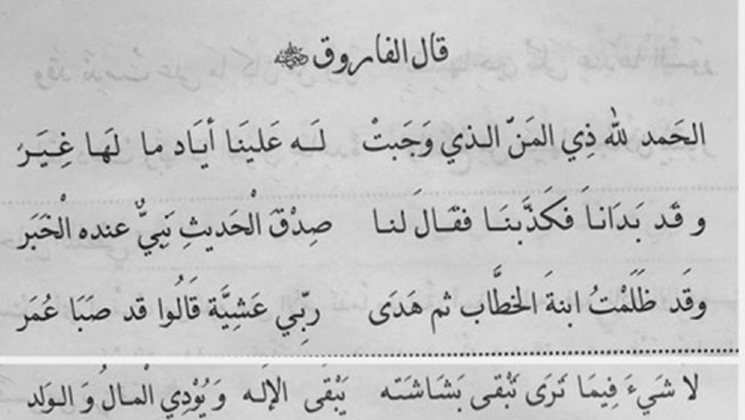 قال الفاروق ﷺ
الحَمد لله ذِي المَنّ الـذي وَجَبتْ لَـه عَلينَا أيَاد ما لهَـا غِيَـرُ
و قَد بَدَاناَ فكَذَّبنَـا فقَـالَ لنـا صِدْقَ الْحَديثِ نَبِيٌّ عنده الْخَبَر
وقَد ظَلَمْتُ ابنةَ الخطَّاب ثم هَدَى ربِّي عَشِيَّة قَالُوا قد صَبَا عُمَر
لا شَيءَ فِيمَا تَرَى تَبْقى بَشَاشَته يَبْقَى الإلَـه وَيُوْدِي الْمالُ وَ الـوَلد